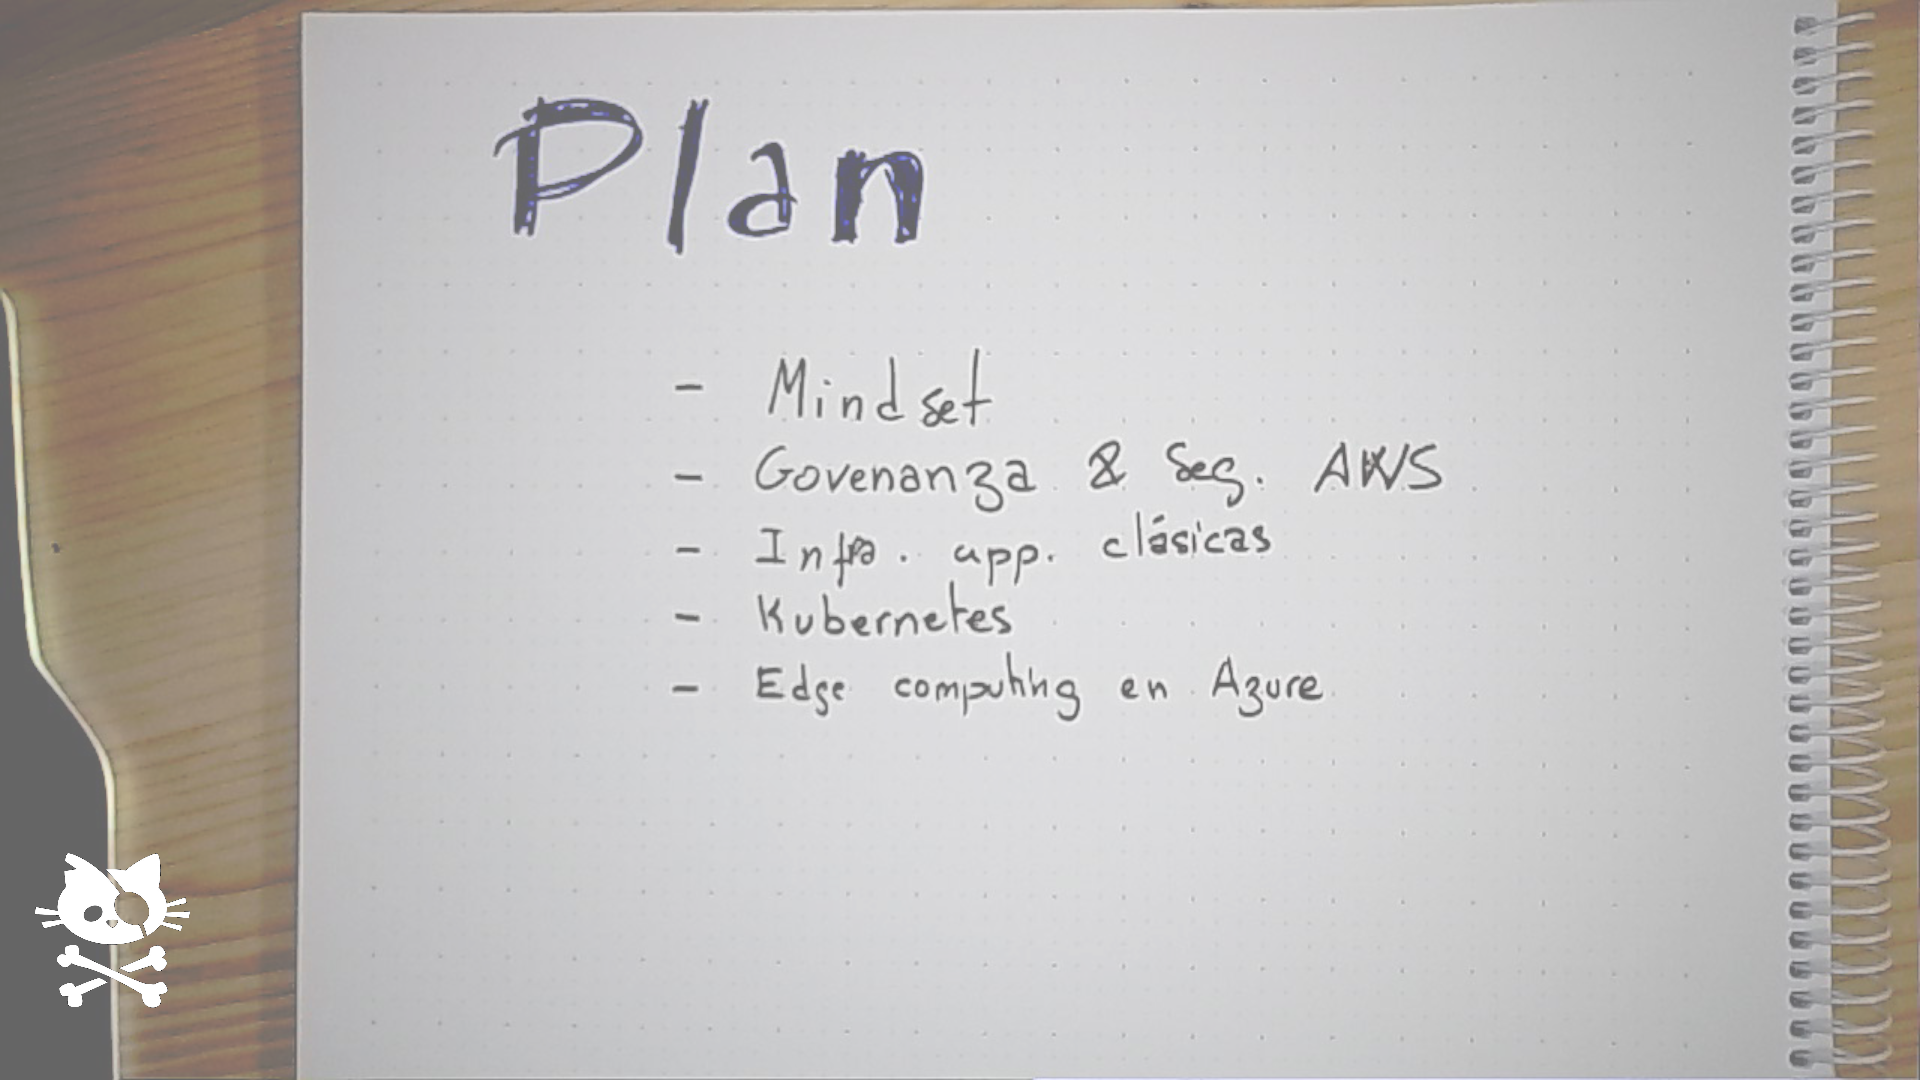 Plan
- Mindset
- Govenanza & Seg. AWS
- Infra. app. clásicas
- Kubernetes
- Edge computing en Azure